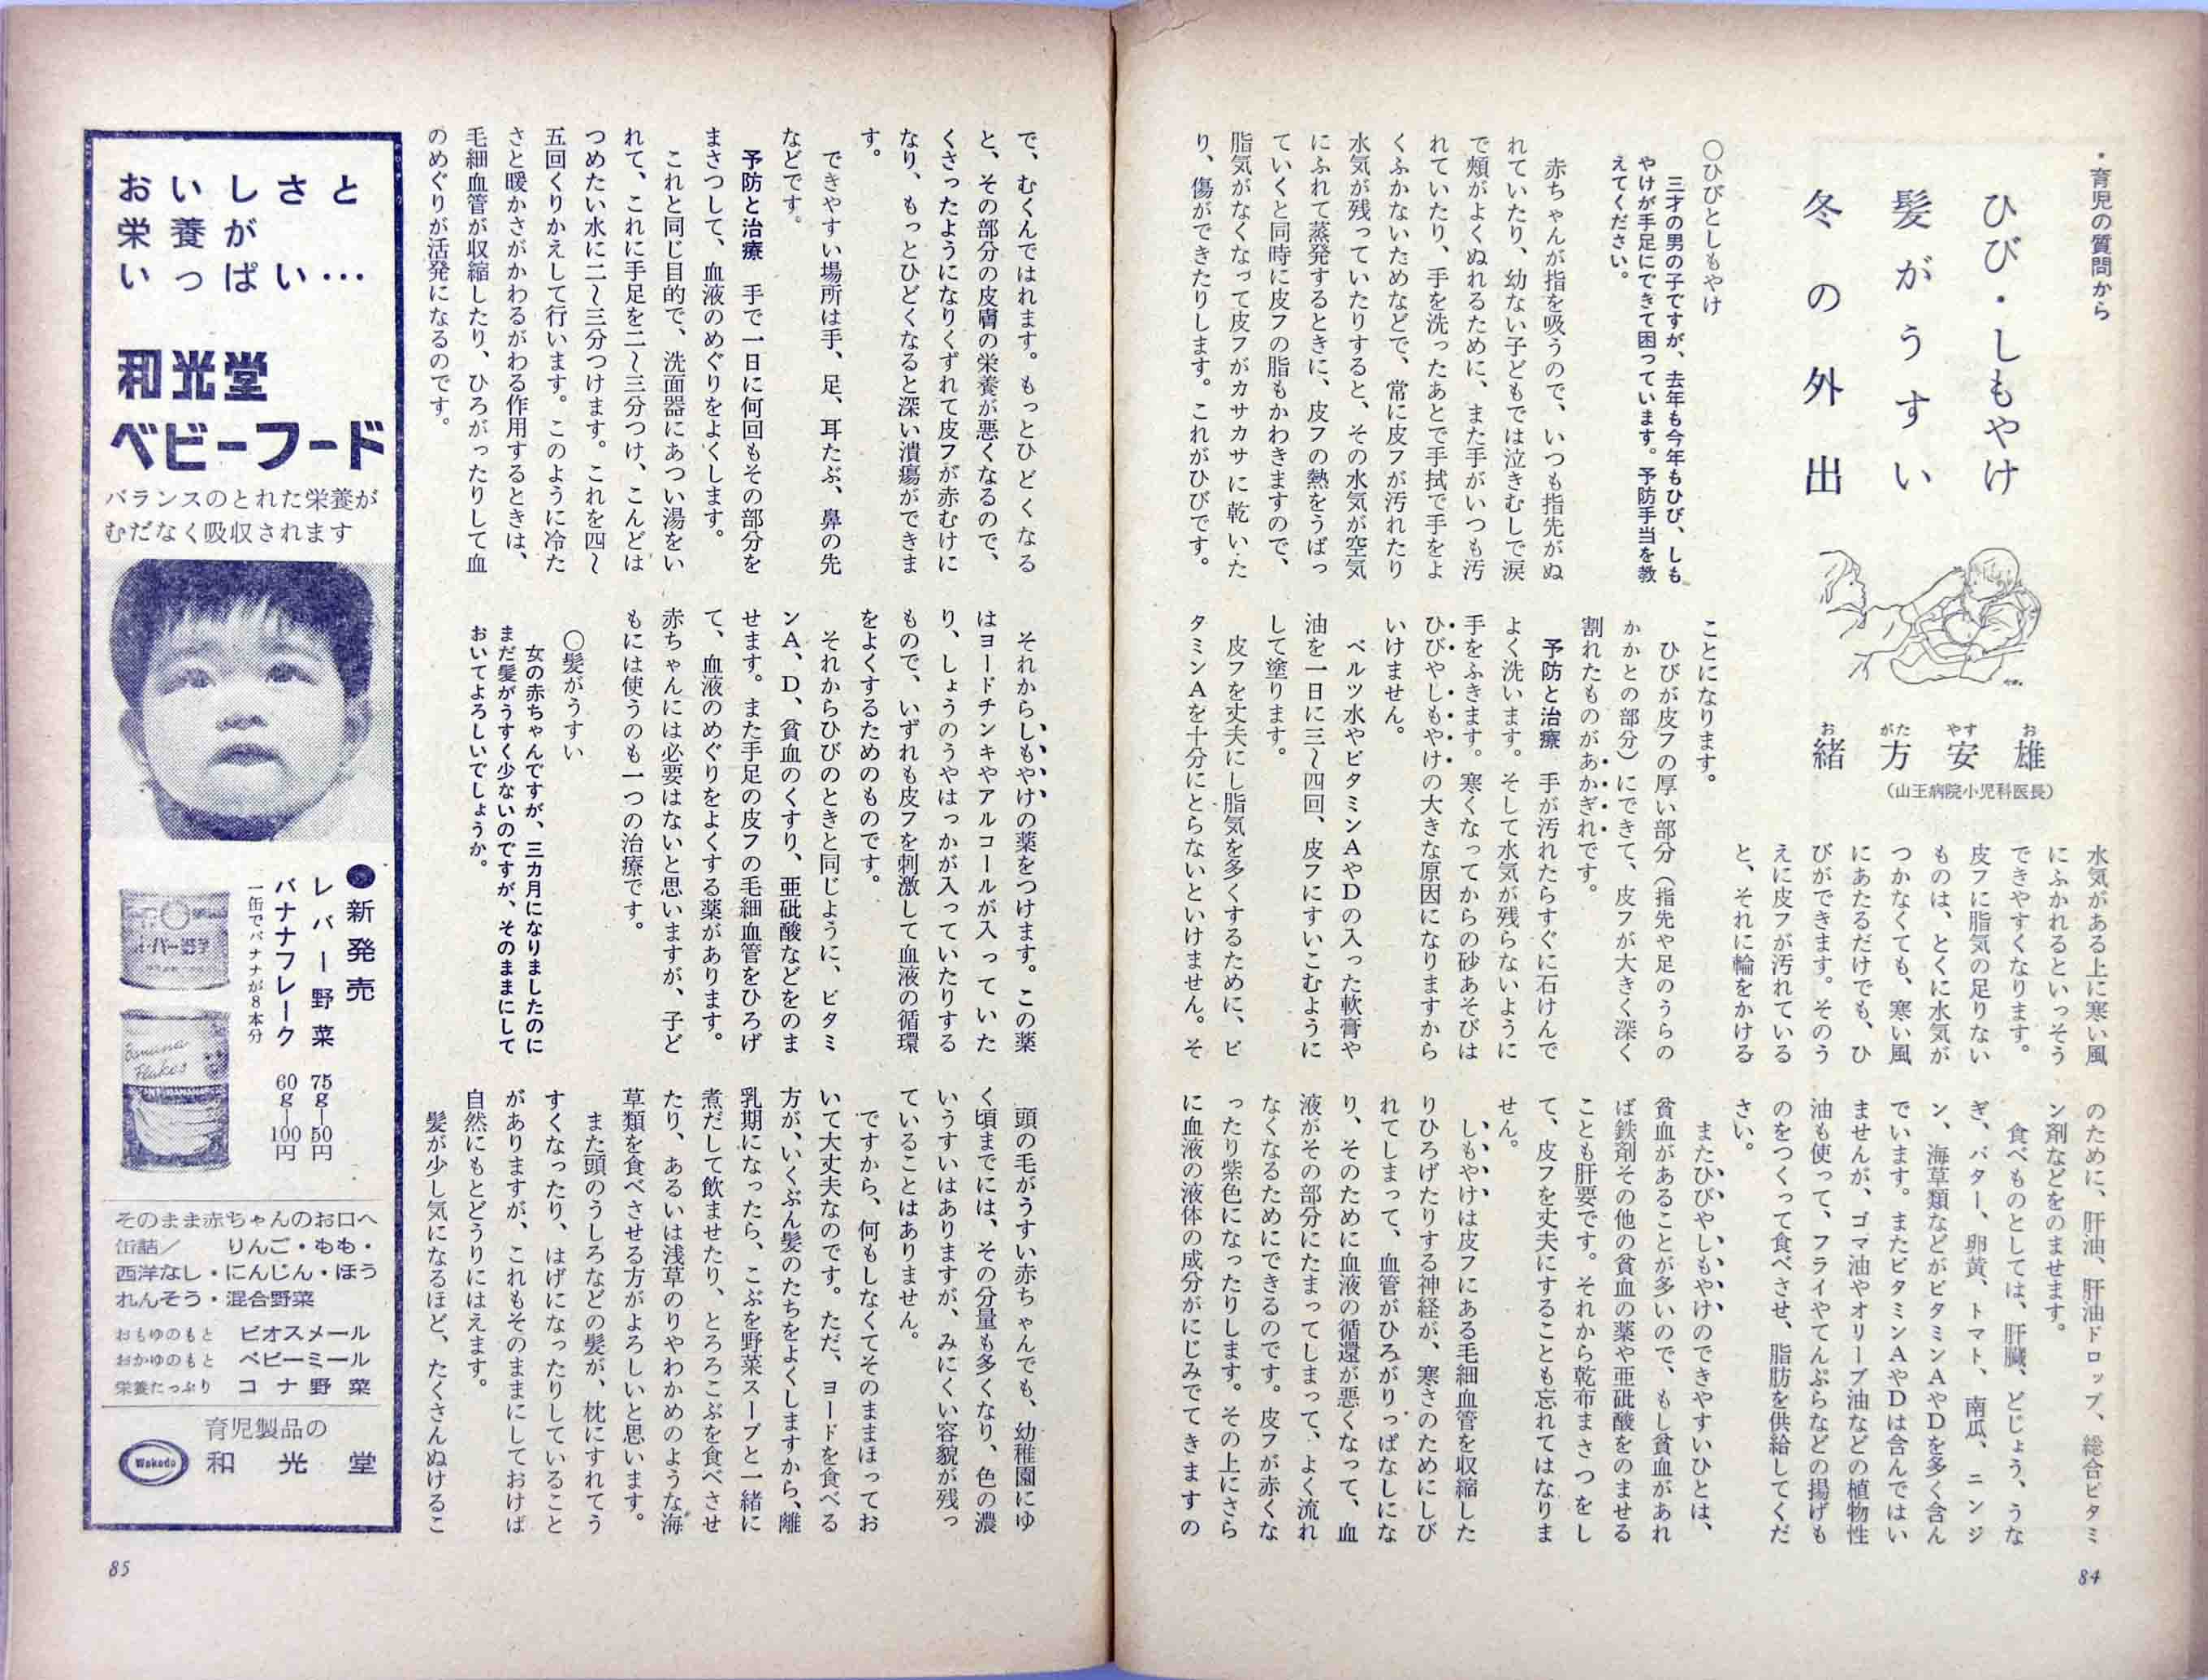 ・育児の質問から
ひび・しもやけ
髪がうすい
冬の外出
緒方安雄
おがたやすお
(山王病院小児科医長)
〇ひびとしもやけ
三才の男の子ですが、去年も今年もひび、しも
やけが手足にできて困っています。予防手当を教
えてください。
赤ちゃんが指を吸うので、いつも指先がぬ
れていたり、幼ない子どもでは泣きむしで涙
で頬がよくぬれるために、また手がいつも汚
れていたり、手を洗ったあとで手拭で手をよ
くふかないためなどで、常に皮フが汚れたり
水気が残っていたりすると、その水気が空気
にふれて蒸発するときに、皮フの熱をうばっ
ていくと同時に皮フの脂もかわきますので、
脂気がなくなって皮フがカサカサに乾いた
り、傷ができたりします。これがひびです。
水気がある上に寒い風
にふかれるといっそう
できやすくなります。
皮フに脂気の足りない
ものは、とくに水気が
つかなくても、寒い風
にあたるだけでも、ひ
びができます。そのう
えに皮フが汚れている
と、それに輪をかける
ことになります。
ひびが皮フの厚い部分(指先や足のうらの
かかとの部分)にできて、皮フが大きく深く
割れたものがあかぎれです。
予防と治療 手が汚れたらすぐに石けんで
よく洗います。そして水気が残らないように
手をふきます。寒くなってからの砂あそびは
ひびやしもやけの大きな原因になりますから
いけません。
ベルツ水やビタミンAやDの入った軟膏や
油を一日に三〜四回、皮フにすいこむように
して塗ります。
皮フを丈夫にし脂気を多くするために、ビ
タミンAを十分にとらないといけません。そ
のために、肝油、肝油ドロップ、総合ビタミ
ン剤などをのませます。
食べものとしては、肝臓、どじょう、うな
ぎ、バター、卵黄、トマト、南瓜、ニンジ
ン、海草類などがビタミンAやDを多く含ん
でいます。またビタミンAやDは含んではい
ませんが、ゴマ油やオリーブ油などの植物性
油も使って、フライやてんぷらなどの揚げも
のをつくって食べさせ、脂肪を供給してくだ
さい。
またひびやしもやけのできやすいひとは、
貧血があることが多いので、もし貧血があれ
ば鉄剤その他の貧血の薬や亜砒酸をのませる
ことも肝要です。それから乾布まさつをし
て、皮フを丈夫にすることも忘れてはなりま
せん。
しもやけは皮フにある毛細血管を収縮した
りひろげたりする神経が、寒さのためにしび
れてしまって、血管がひろがりっぱなしにな
り、そのために血液の循還が悪くなって、血
液がその部分にたまってしまって、よく流れ
なくなるためにできるのです。皮フが赤くな
ったり紫色になったりします。その上にさら
に血液の液体の成分がにじみでてきますの
84
で、むくんではれます。もっとひどくなる
と、その部分の皮膚の栄養が悪くなるので、
くさったようになりくずれて皮フが赤むけに
なり、もっとひどくなると深い潰瘍ができま
す。
できやすい場所は手、足、耳たぶ、鼻の先
などです。
予防と治療 手で一日に何回もその部分を
まさつして、血液のめぐりをよくします。
これと同じ目的で、洗面器にあつい湯をい
れて、これに手足を二〜三分つけ、こんどは
つめたい水に二〜三分つけます。これを四〜
五回くりかえして行います。このように冷た
さと暖かさがかわるがわる作用するときは、
毛細血管が収縮したり、ひろがったりして血
のめぐりが活発になるのです。
それからしもやけの薬をつけます。この薬
はヨードチンキやアルコールが入っていた
り、しょうのうやはっかが入っていたりする
もので、いずれも皮フを刺激して血液の循環
をよくするためのものです。
それからひびのときと同じように、ビタミ
ンA、D、貧血のくすり、亜砒酸などをのま
せます。また手足の皮フの毛細血管をひろげ
て、血液のめぐりをよくする薬があります。
赤ちゃんには必要はないと思いますが、子ど
もには使うのも一つの治療です。
〇髪がうすい
女の赤ちゃんですが、三カ月になりましたのに
まだ髪がうすく少ないのですが、そのままにして
おいてよろしいでしょうか。
頭の毛がうすい赤ちゃんでも、幼稚園にゆ
く頃までには、その分量も多くなり、色の濃
いうすいはありますが、みにくい容貌が残っ
ていることはありません。
ですから、何もしなくてそのままほってお
いて大丈夫なのです。ただ、ヨードを食べる
方が、いくぶん髪のたちをよくしますから、離
乳期になったら、こぶを野菜スープと一緒に
煮だして飲ませたり、とろろこぶを食べさせ
たり、あるいは浅草のりやわかめのような海
草類を食べさせる方がよろしいと思います。
また頭のうしろなどの髪が、枕にすれてう
すくなったり、はげになったりしていること
がありますが、これもそのままにしておけば
自然にもとどうりにはえます。
髪が少し気になるほど、たくさんぬけるこ
おいしさと
栄養が
いっぱい…
和光堂
ベビーフード
バランスのとれた栄養が
むだなく吸収されます
●新発売
レバー野菜 75g―50円
バナナフレーク 60g―100円
一缶でバナナが8本分
レバー野菜
Banana
Flakes
そのまま赤ちゃんのお口へ
缶詰/ りんご・もも・
西洋なし・にんじん・ほう
れんそう・混合野菜
おもゆのもと ビオスメール
おかゆのもと ベビーミール
栄養たっぷり コナ野菜
育児製品の
Wakodo 和光堂
85